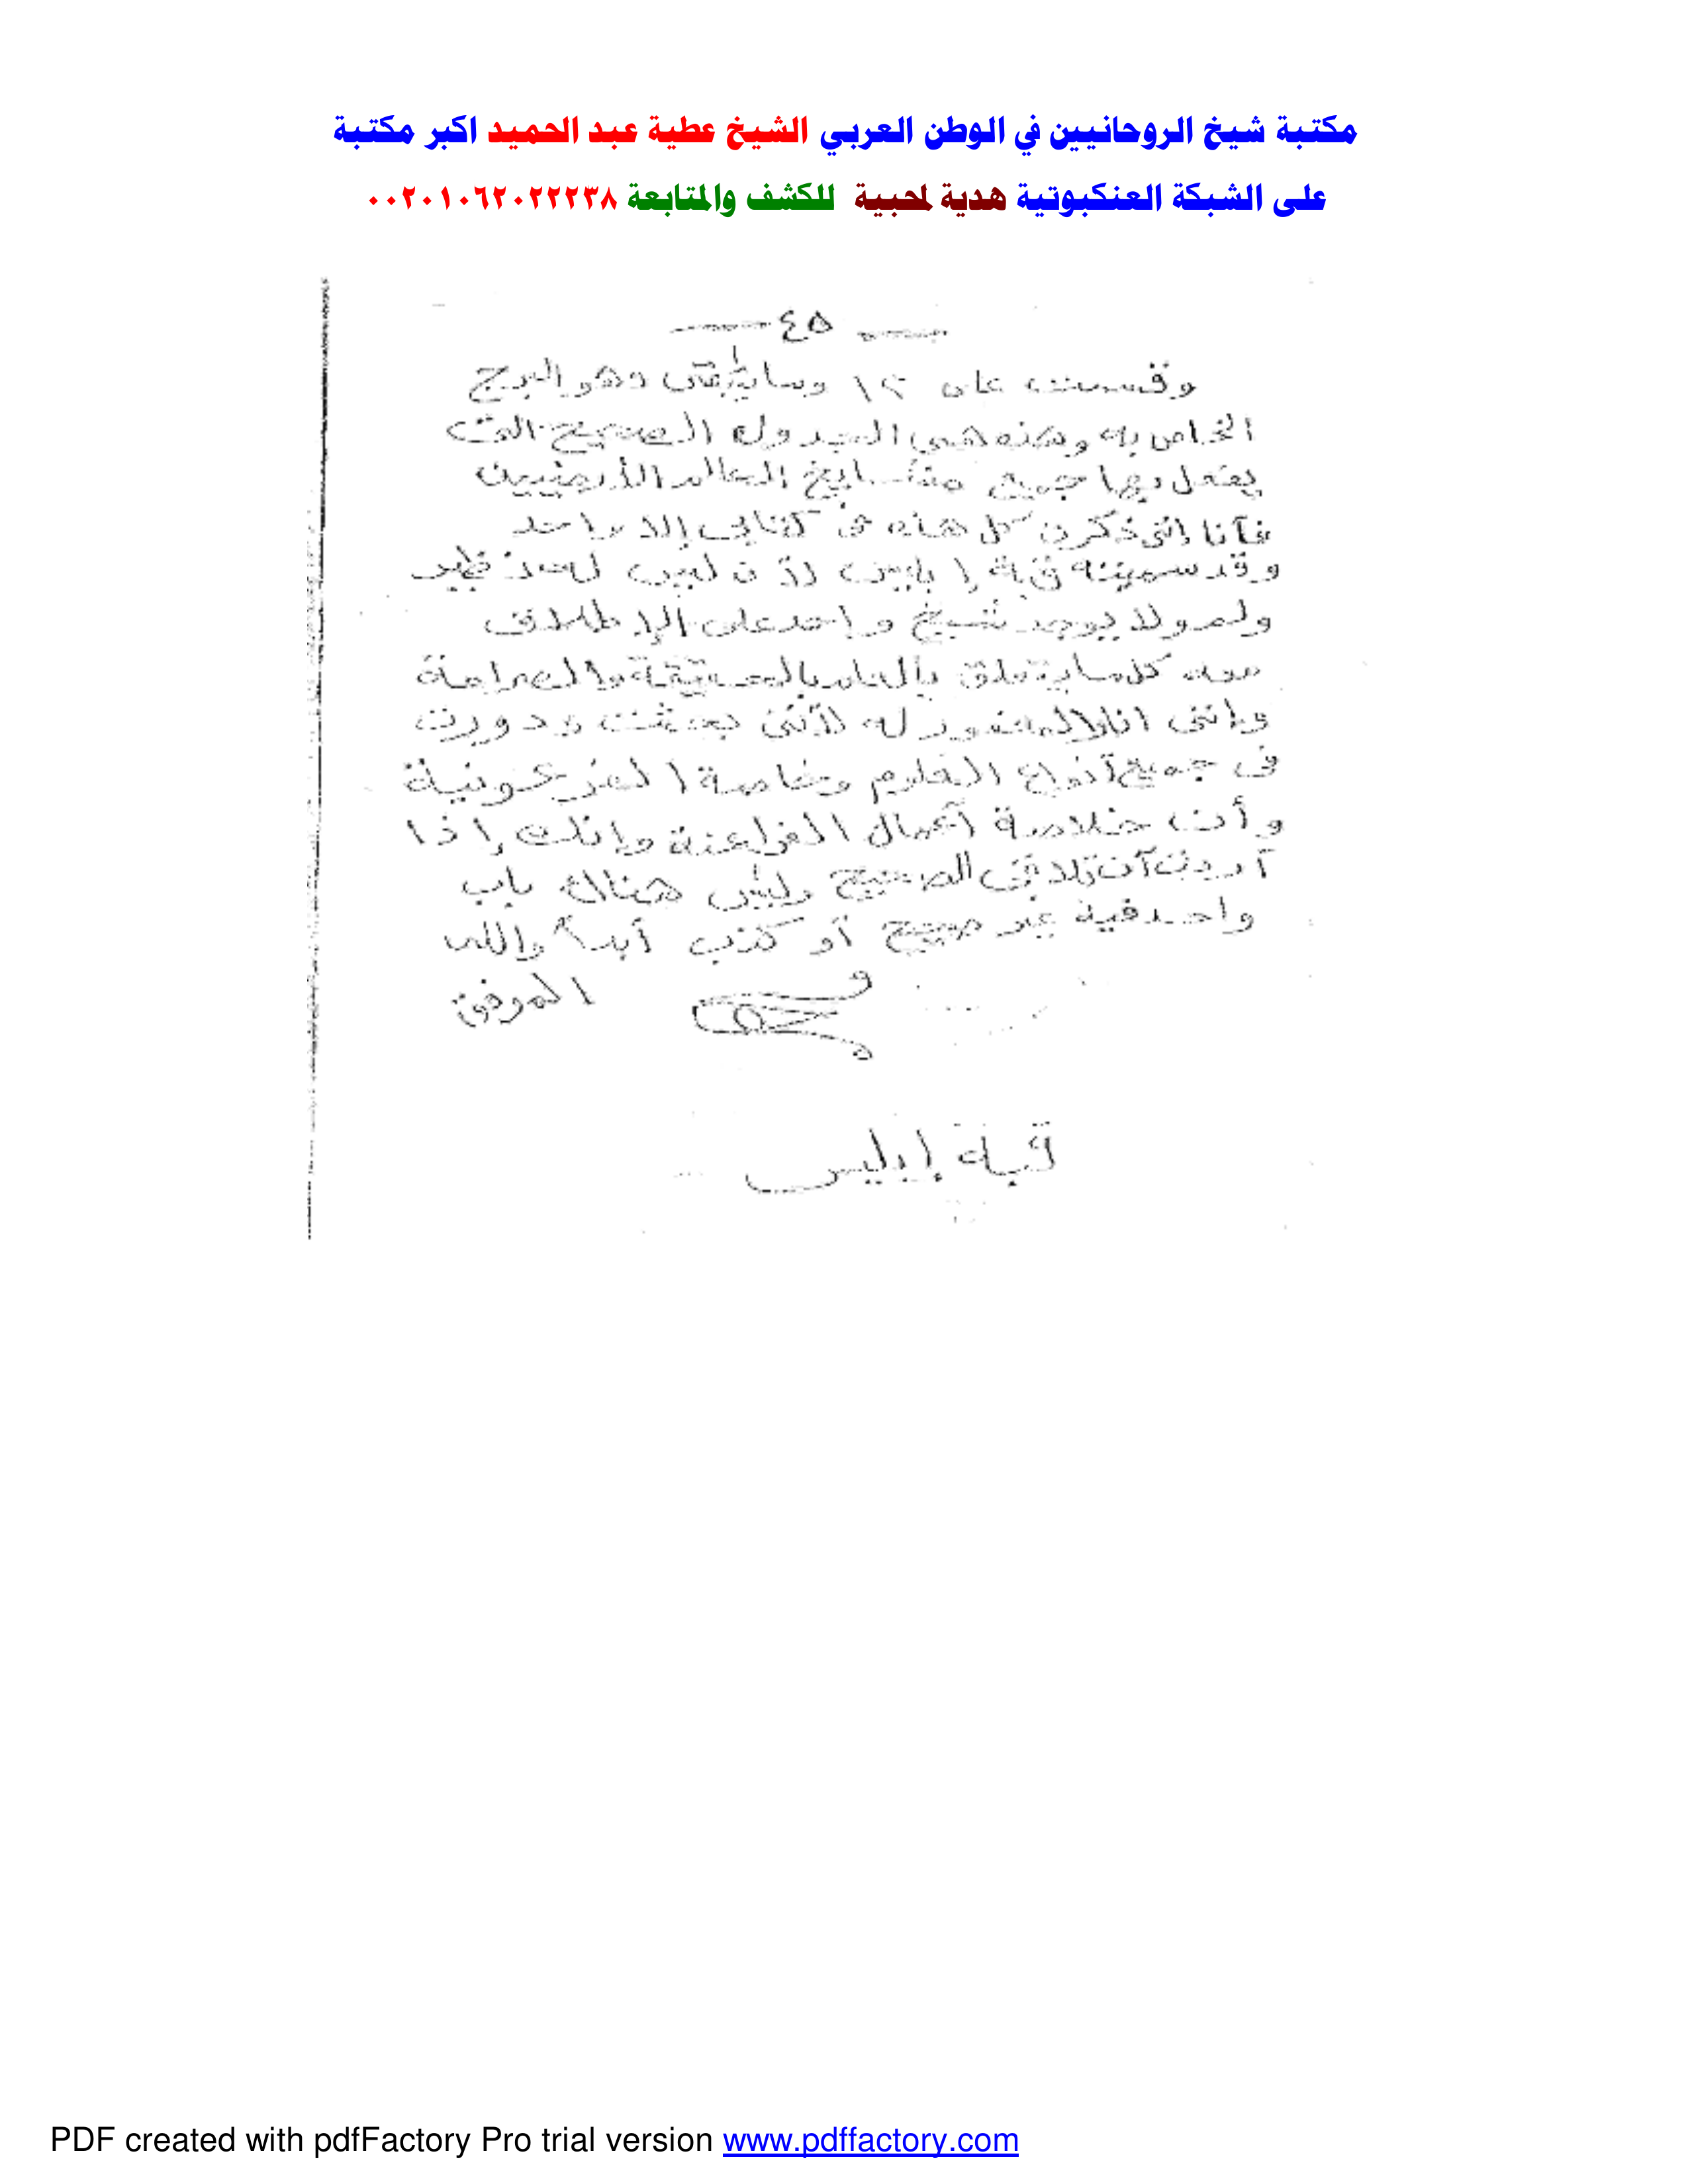 مكتبة شيخ الروحانيين في الوطن العربي الشيخ عطية عبد الحميد اكبر مكتبة
على الشبكة العنكبوتية هدية لمحبية للكشف والمتابعة ٠٠٢٠١٠٦٢٠٢٢٢٣٨
— ٤٥ —
وقسمت على ١٢ وما يتبقى وهو البرج
الخاص به وهذه هى الجدول الصحيح التى
يعمل بها جميع مشايخ العالم الأرضيين
فأنا إننى ذكرت كل هذه فى كتابى إلا واحد
وقد سميته قبة إبليس لأن ليس له نظير
ولم ولا يوجد شيخ واحد على الإطلاق
معه كل ما يتعلق بالحقيقة والصراحة
وإننى انا له لأننى بحثت ودورت
فى جميع أنواع العلوم وخاصة الفرعونية
وأن خلاصة أعمال الفراعنة وإنك إذا
أردت أن تلاقى الصحيح وليس هناك باب
واحد فيه غير صحيح أو كذب أبداً والله
الموفق
قبة إبليس
PDF created with pdfFactory Pro trial version www.pdffactory.com